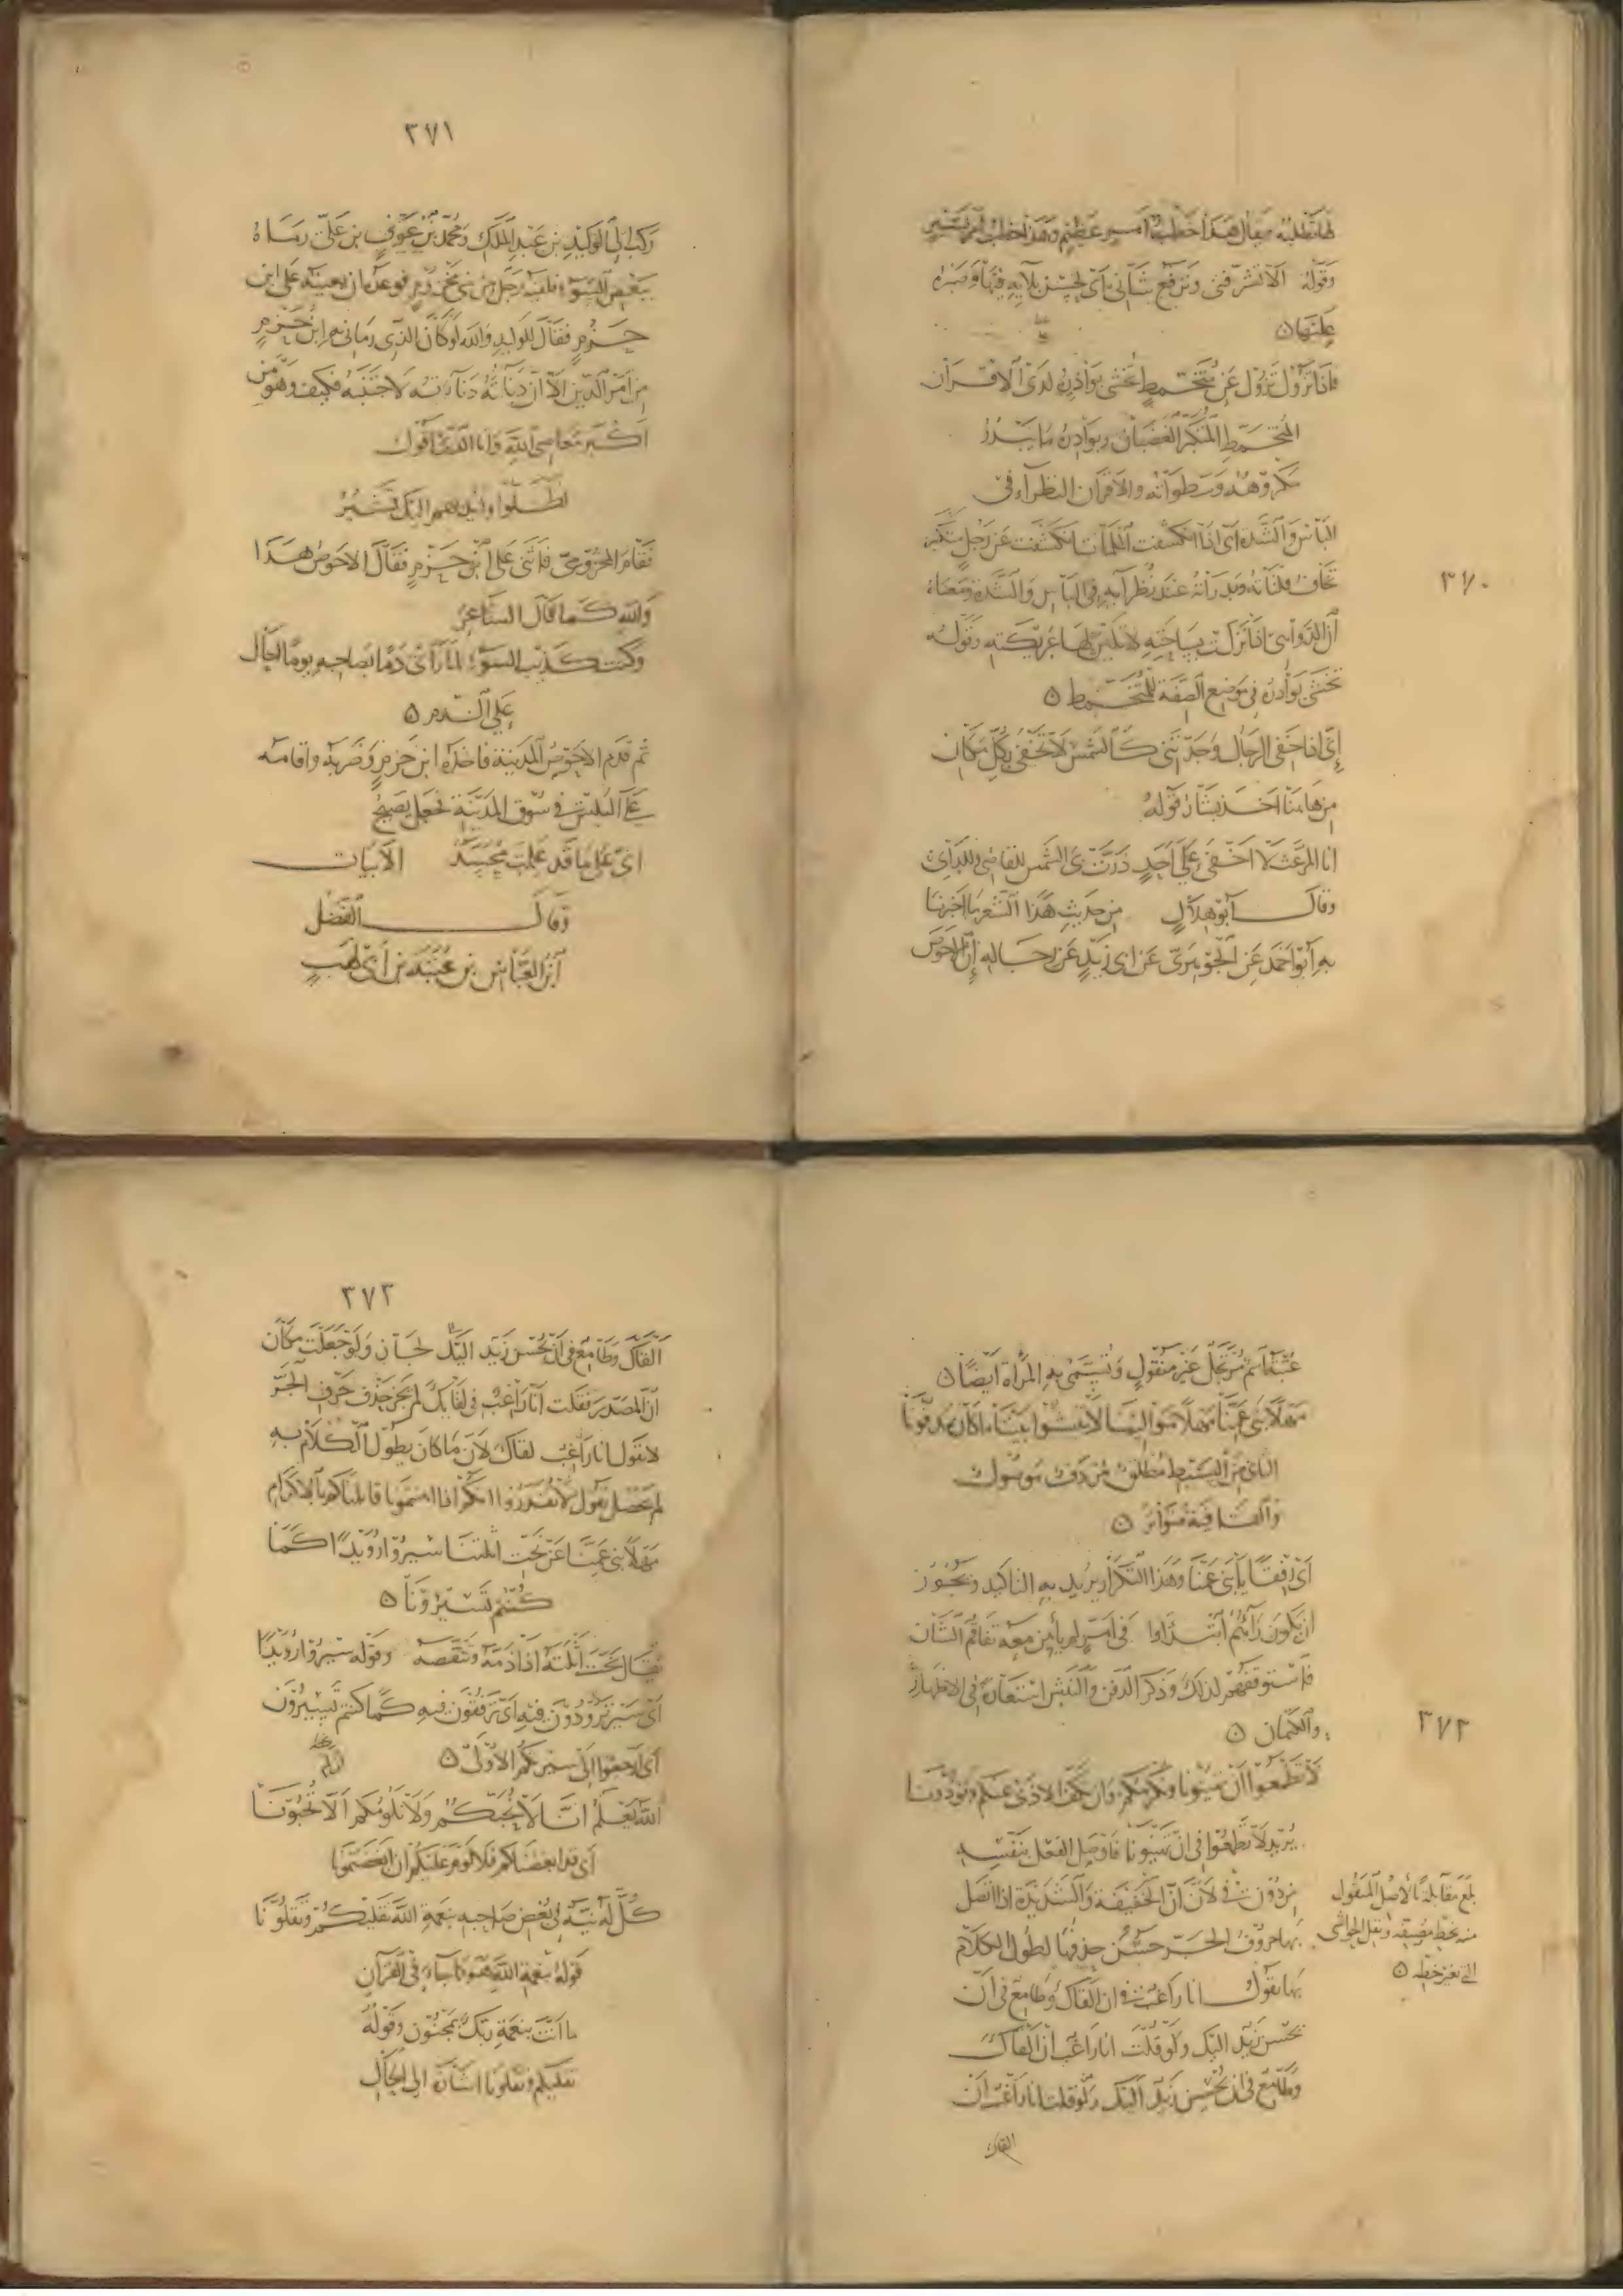 ٣٧٠
وقوله الا تشرفني وترفع شاني اي لحسن بلائه فيها وصبره
عليها ن
فاذا تزول تزول عن متخمط تخشى بوادره لدى الاقران
المتخمط المتكبر الغضبان وبوادره ما يبدر
مكروهه وسطواته والاقران النظراء في
الباس والشدة اي اذا انكشفت الملمات انكشفت عن رجل متكبر
تخاف فلتاته وبدراته عند نظرائه في الباس والشدة ومعناه
ان الدواهي اذا نزلت بساحته لا تلين لها عريكته وقوله
تخشى بوادره في موضع الصفة للمتخمط ن
اني اذا خفي الرجال وجدتني كالشمس لا تخفى بكل مكان
من هاهنا اخذ بشار قوله
انا المرعث لا اخفى على احد ذرت بي الشمس للقاصي وللداني
وقال ابو هلال من حديث هذا الشعر ما اخبرنا
به ابو احمد عن الجوهري عن ابي زيد عن رجاله ان الاحوص
٣٧١
ركب الى الوليد بن عبد الملك ومحمد بن عوف بن علي رماه
ببعض السوء فلقيه رجل من بني مخزوم فوعده ان يعينه على ابن
حزم فقال للوليد والله لو كان الذي رماني به ابن حزم
من امر الدين الا ان دناءته دناءته لاجتنبه فكيف وهو من
اكبر معاصي الله وانا الذي اقول
فقام المخزومي فاثنى على ابن حزم فقال الاحوص هذا
والله كما قال الشاعر
وكنت كذئب السوء لما رأى دما بصاحبه يوما احال
على الدم ن
ثم قدم الاحوص المدينة فاخذه ابن حزم وضربه واقامه
على البلس في سوق المدينة فجعل يصيح
اني على ما قد علمت محسد الابيات
وقال الفضل
ابن العباس بن عتبة بن ابي لهب
عتبة اسم مرتجل غير منقول وتسمى به المرأة ايضا ن
مهلا بني عمنا مهلا موالينا لا تنبشوا بيننا ما كان مدفونا
الثاني من البسيط مطلق مردف موصول
والقافية متواتر ن
اي رفقا يا بني عمنا وهذا التكرار يريد به التاكيد ويجوز
ان يكون رآهم ابتدأوا في امر لم يأمن معه تفاقم الشان
فاستوقفهم لذلك وذكر الدفن والنبش استعارة في الاظهار
والكتمان ن
٣٧٢
لا تطمعوا ان تهينونا ونكرمكم وان نكف الاذى عنكم وتؤذونا
يريد لا تطمعوا في ان تهينونا فاوصل الفعل بنفسه
من دون في لان ان الخفيفة والشديدة اذا اتصل
بهما حروف الجر حسن حذفها لطول الكلام
بهما تقول انا راغب في ان القاك وطامع في ان
يحسن زيد اليك ولو قلت انا راغب ان القاك
وطامع في ان يحسن زيد اليك ولو قلت انا راغب ان
القاك
بلغ مقابلة بالاصل المنقول
منه بخط مصنفه ونقل الحواشي
التي بغير خطه ن
٣٧٣
القاك وطامع في ان يحسن زيد اليك لجاز ولو جعلت مكان
ان المصدر فقلت انا راغب في لقائك لم يجز حذف حرف الجر
لا تقول انا راغب لقاك لان ما كان يطول الكلام به
لم يحصل يقول لا تقدروا انكم اذا اهنتمونا قابلناكم بالاكرام
مهلا بني عمنا عن نحت اثلتنا سيروا رويدا كما
كنتم تسيرونا ن
يقال نحت اثلته اذا ذمه وتنقصه وقوله سيروا رويدا
اي سير ترودون فيه اي ترفقون فيه كما كنتم تسيرون
اي ارجعوا الى سيركم الاول ن
الله يعلم انا لا نحبكم ولا نلومكم الا تحبونا
اي قد ابغضناكم فلا لوم عليكم ان ابغضتمونا
كل له نية في بغض صاحبه بنعمة الله نقليكم وتقلونا
قوله بنعمة الله هو كما جاء في القرآن
ما انت بنعمة ربك بمجنون وقوله
نقليكم وتقلونا اشارة الى الحال